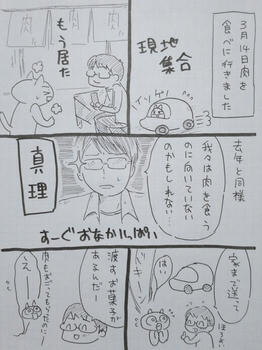 3月14日肉を
食べに行きました
ブンブン
現地
集合
肉
もう居た
去年と同様
我々は肉を食う
のに向いていない
のかもしれない…
真理
すーぐおなかいっぱい
家まで送って
はい
ドキ
ほろよい
渡すお菓子が
あるんだー
え
肉もおごってもらったのに